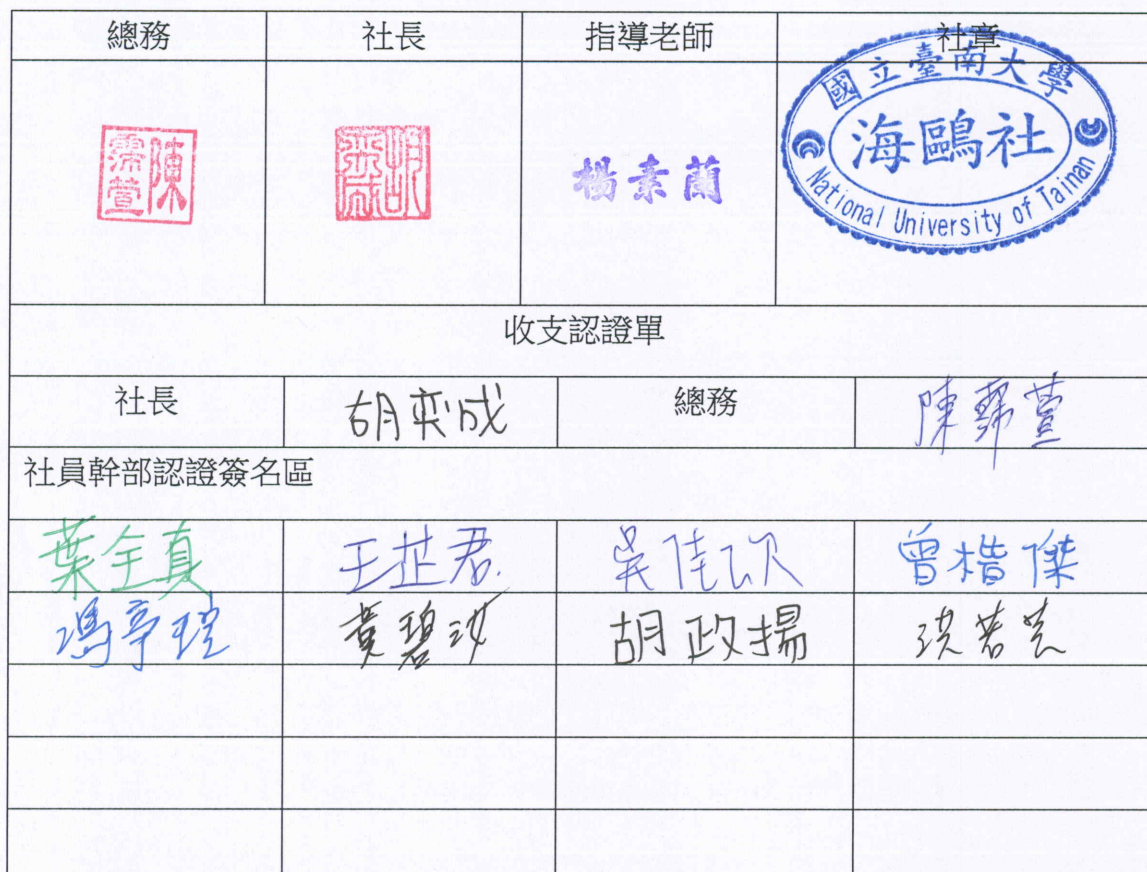 總務 社長 指導老師 社章
陳霈萱 胡奕成 楊素蘭 國立臺南大學
海鷗社
National University of Tainan
收支認證單
社長 胡奕成 總務 陳霈萱
社員幹部認證簽名區
葉全真 王芷君 吳佳欣 曾楷傑
馮亭瑄 黃碧汝 胡政揚 洪若芸